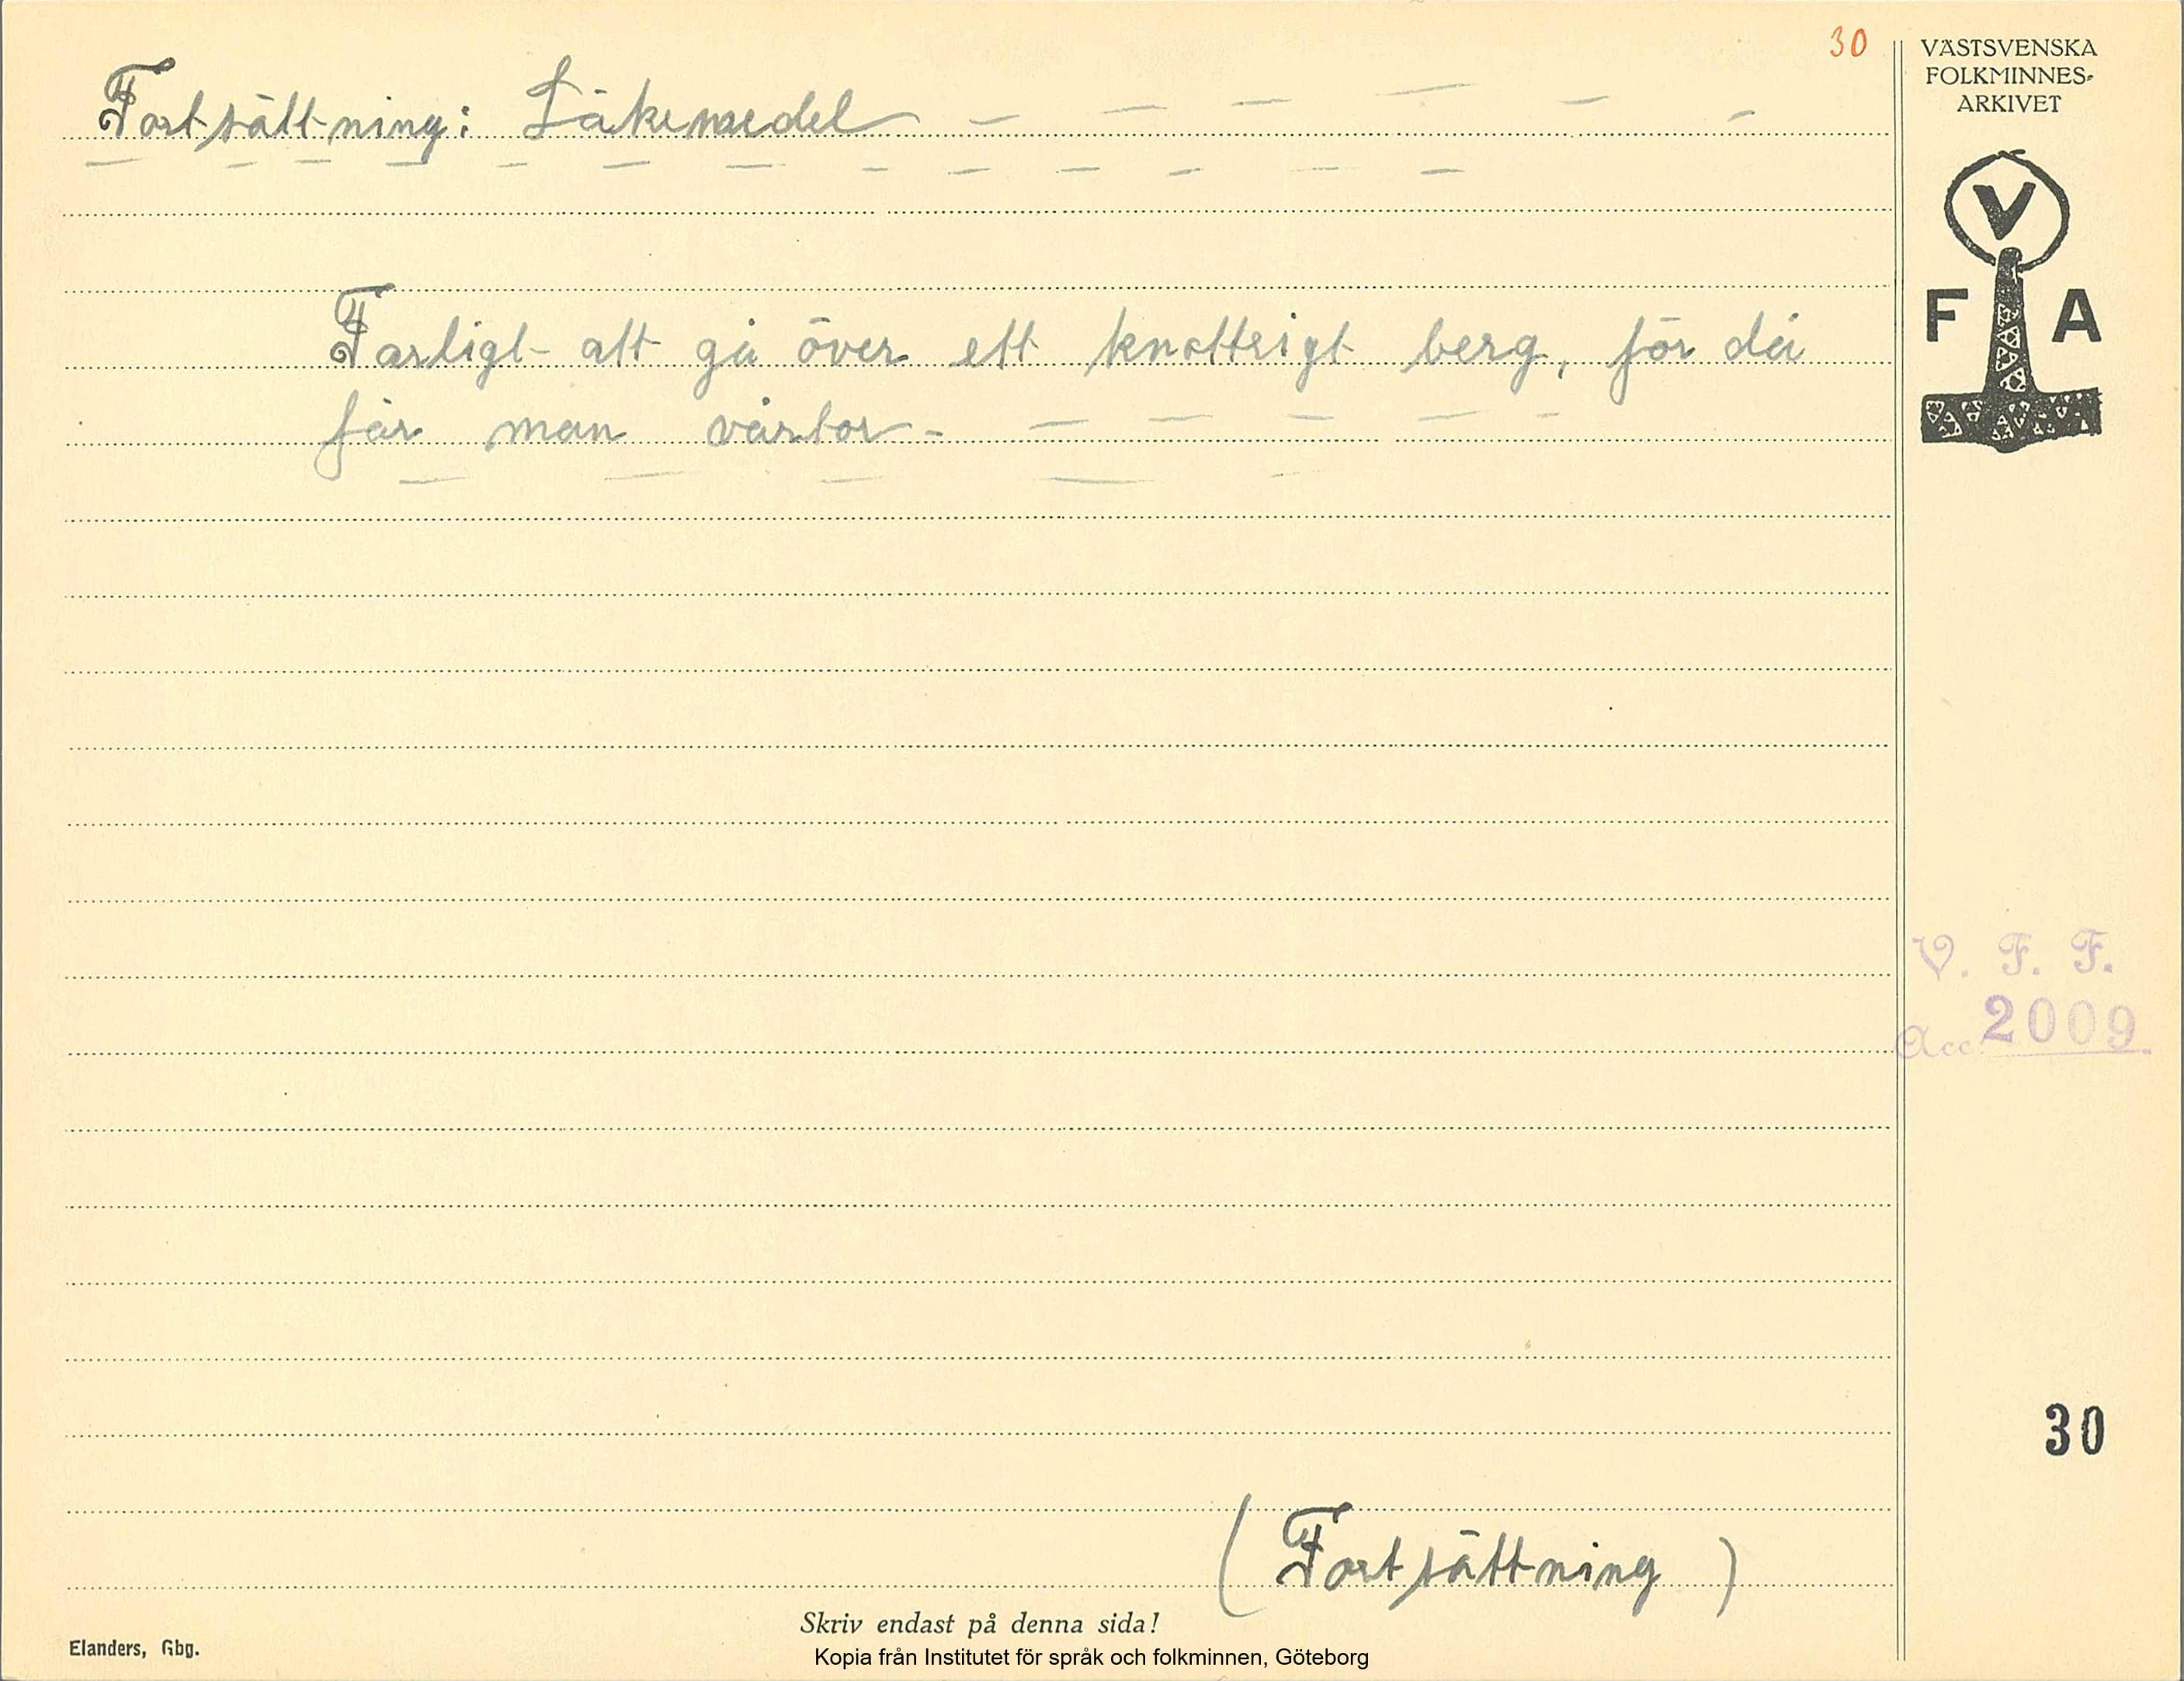 30
Fortsättning: Läkemedel — — — — — —
— — — — — — — — — — — — —
Farligt att gå över ett knottrigt berg, för då
får man vårtor - — — — — —
— — — — —
(Fortsättning)
Skriv endast på denna sida!
Elanders, Gbg.
Kopia från Institutet för språk och folkminnen, Göteborg
VÄSTSVENSKA
FOLKMINNES-
ARKIVET
V
F A
V. F. F.
Acc. 2009.
30